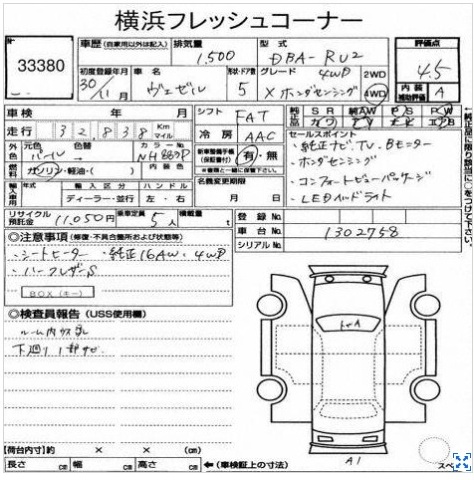 横浜フレッシュコーナー
No.
33380
車歴(自家用以外は記入)
排気量 1,500
型式 DBA-RU2
評価点 4.5
初度登録年月 30/11月
車名 ヴェゼル
形状・ドア数 5
グレード 4WD
X ホンダセンシング
2WD
4WD
内装補助評価 A
車検 年 月
シフト FAT
純正品 SR 純AW PS PW
走行 32,838 Km マイル
冷房 AAC
セールスポイント
・純正ナビ,TV,Bモニター
・ホンダセンシング
・コンフォートビューパッケージ
・LEDヘッドライト
外色 元色 パール 色替
カラーNo. NH883P
内装色
新車整備手帳(保証書付) 有・無
燃料 ガソリン・軽油・( )
名義変更期限 月 日
輸入車用 年式 輸入区分 ハンドル
ディーラー・並行 左・右
リサイクル預託金 11,050円
乗車定員 5人
積載量 t
登録No.
車台No. 1302758
シリアルNo.
◎注意事項(修復・不具合箇所および状態等)
・シートヒーター ・純正16AW ・4WD
・ハーフレザーS
BOX(キー)
◎検査員報告(USS使用欄)
下廻り1部サビ
【荷台内寸】約 × × (cm)
長さ cm 幅 cm 高さ cm ←(車検証上の寸法)
A1
スペ